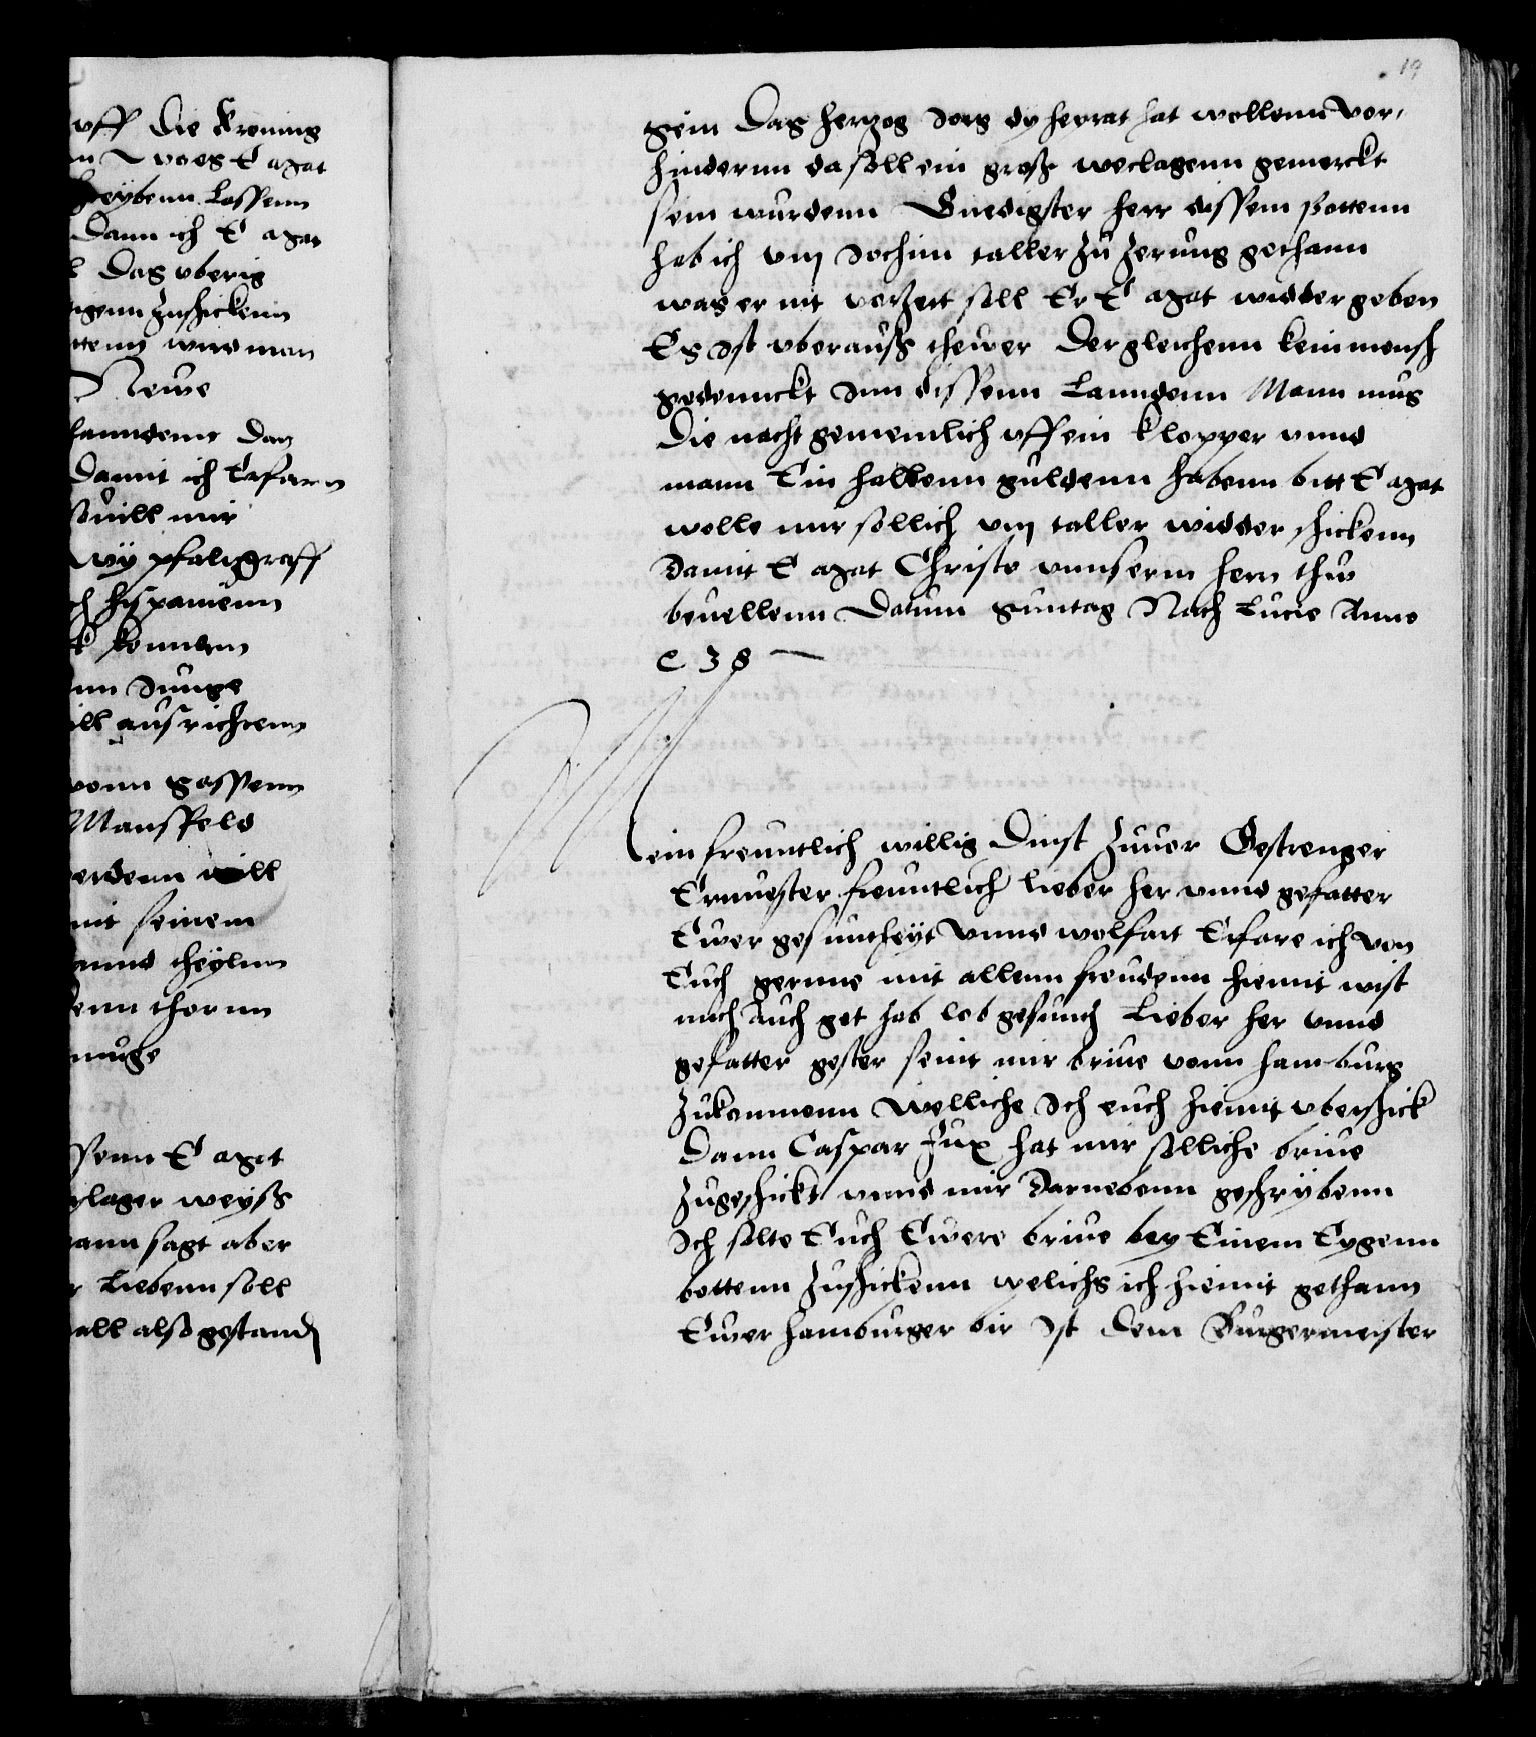 19
uff die Kroning
E mat
schreybenn Lassenn
Dann ich E mat
Das uberig
zuschickenn
wirdman
Newe
Lanndenn Das
damit ich Erfarn
will mir
wÿ pfaltzgraff
hispanienn
konndenn
Junge
ausrichtenn
vonn hessenn
Manssfeld
werdenn will
mit seinem
lannd theylnn
thorun
muge
E mat
weyß
mann sagt aber
Liebenn soll
all also gestandenn
gein Das hertzog Jorg dy heyrat hat wollenn vor,
hindernn da soll ein groß weclagenn gemerckt
sein wurdenn Gnedigster herr dissem Bottenn
hab ich vij Jochim taller zu zerung gethann
was er nit vorzert soll Er E mat widdergeben
Es Ist uberauß thewer dergleichenn kein mensch
gedennckt Inn dissenn Lanndenn Mann mus
Die nacht gemeinlich uff ein klopper unnd
mann Ein halbenn guldenn habenn bitt E mat
wolle mir sollich vij taller widder schickenn
damit E mat Christo unnserm hern thw
beuellenn Datum Suntag Nach Lucie Anno
e 38
Mein freuntlich willig Dinst zuuor Gestrenger
Ernuester freuntlich lieber her unnd gefatter
Ewer gesuntheyt unnd wolfart Erfare ich von
Euch gernne mit allenn freudenn hiemit wist
mich Auch got hab lob gesunth Lieber her unnd
gefatter gester seint mir briue vonn hamburg
zukommenn Welliche Ich euch hiemit uberschick
Dann Caspar Fux hat mir solliche briue
zugeschickt unnd mir Darnebenn geschrybenn
Ich solte Euch Ewere briue bey Einem Eygenn
bottenn zuschickenn welichs ich hiemit gethann
Ewer hamburger bir Ist dem Burgermeister